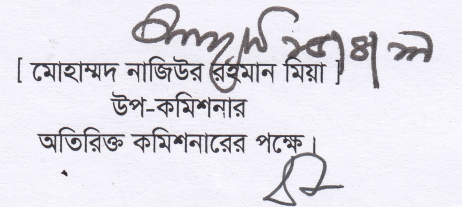 [ মোহাম্মদ নাজিউর রহমান মিয়া ]
উপ-কমিশনার
অতিরিক্ত কমিশনারের পক্ষে।